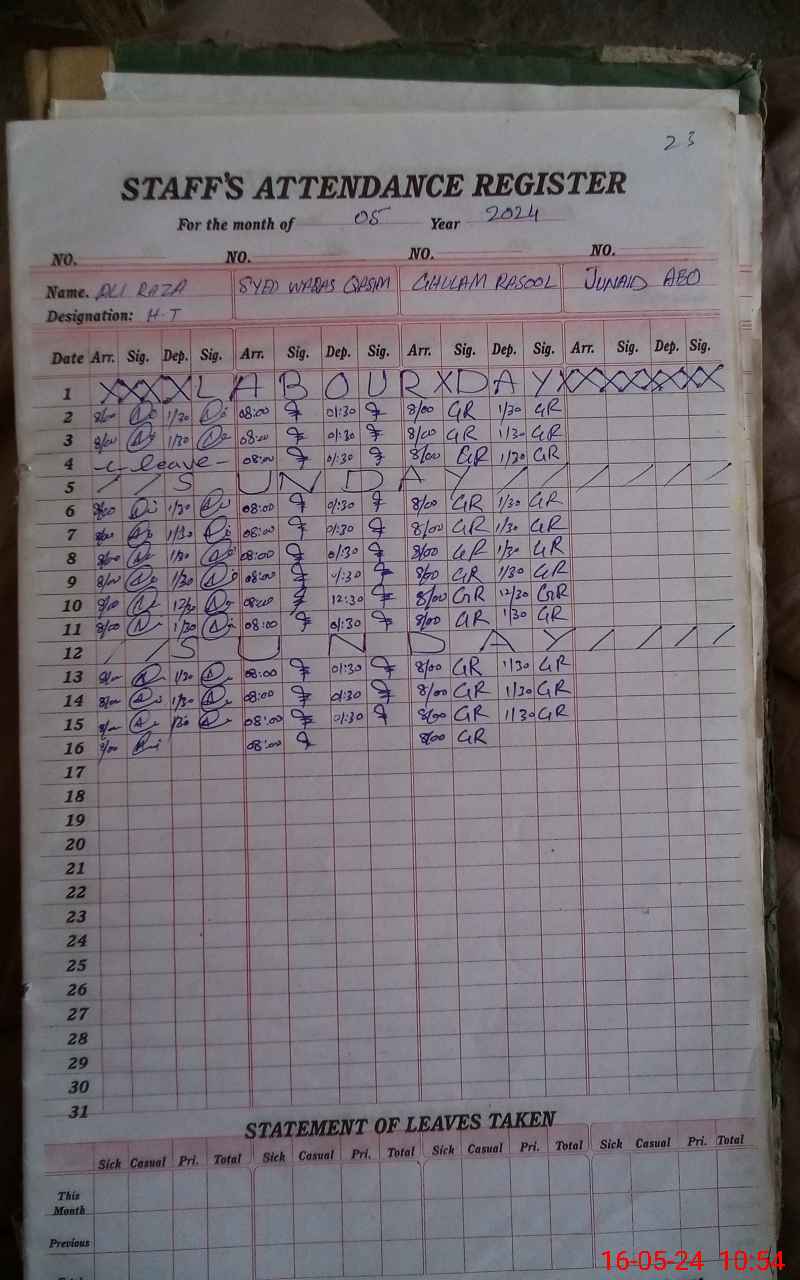 23
STAFF'S ATTENDANCE REGISTER
For the month of 05 Year 2024
NO. NO. NO. NO.
Name. ALI RAZA SYED WARAS QASIM GHULAM RASOOL JUNAID ABO
Designation: H-T
Date Arr. Sig. Dep. Sig. Arr. Sig. Dep. Sig. Arr. Sig. Dep. Sig. Arr. Sig. Dep. Sig.
1 XXXX LABOUR X DAY XXXXXXX
2 8/00 1/30 08:00 01:30 8/00 GR 1/30 GR
3 8/00 1/30 08:00 01:30 8/00 GR 1/30 GR
4 leave 08:00 01:30 8/00 GR 1/30 GR
5 / / SUNDAY / / / / / /
6 8/00 1/30 08:00 01:30 8/00 GR 1/30 GR
7 8/00 1/30 08:00 01:30 8/00 GR 1/30 GR
8 8/00 1/30 08:00 01:30 8/00 GR 1/30 GR
9 8/00 1/30 08:00 1:30 8/00 GR 1/30 GR
10 8/00 12/30 08:00 12:30 8/00 GR 12/30 GR
11 8/00 1/30 08:00 01:30 8/00 GR 1/30 GR
12 / / SUNDAY / / / / /
13 8/00 1/30 08:00 01:30 8/00 GR 1/30 GR
14 8/00 1/30 08:00 01:30 8/00 GR 1/30 GR
15 8/00 1/30 08:00 01:30 8/00 GR 1/30 GR
16 8/00 08:00 8/00 GR
17
18
19
20
21
22
23
24
25
26
27
28
29
30
31
STATEMENT OF LEAVES TAKEN
Sick Casual Pri. Total Sick Casual Pri. Total Sick Casual Pri. Total Sick Casual Pri. Total
This
Month
Previous
16-05-24 10:54